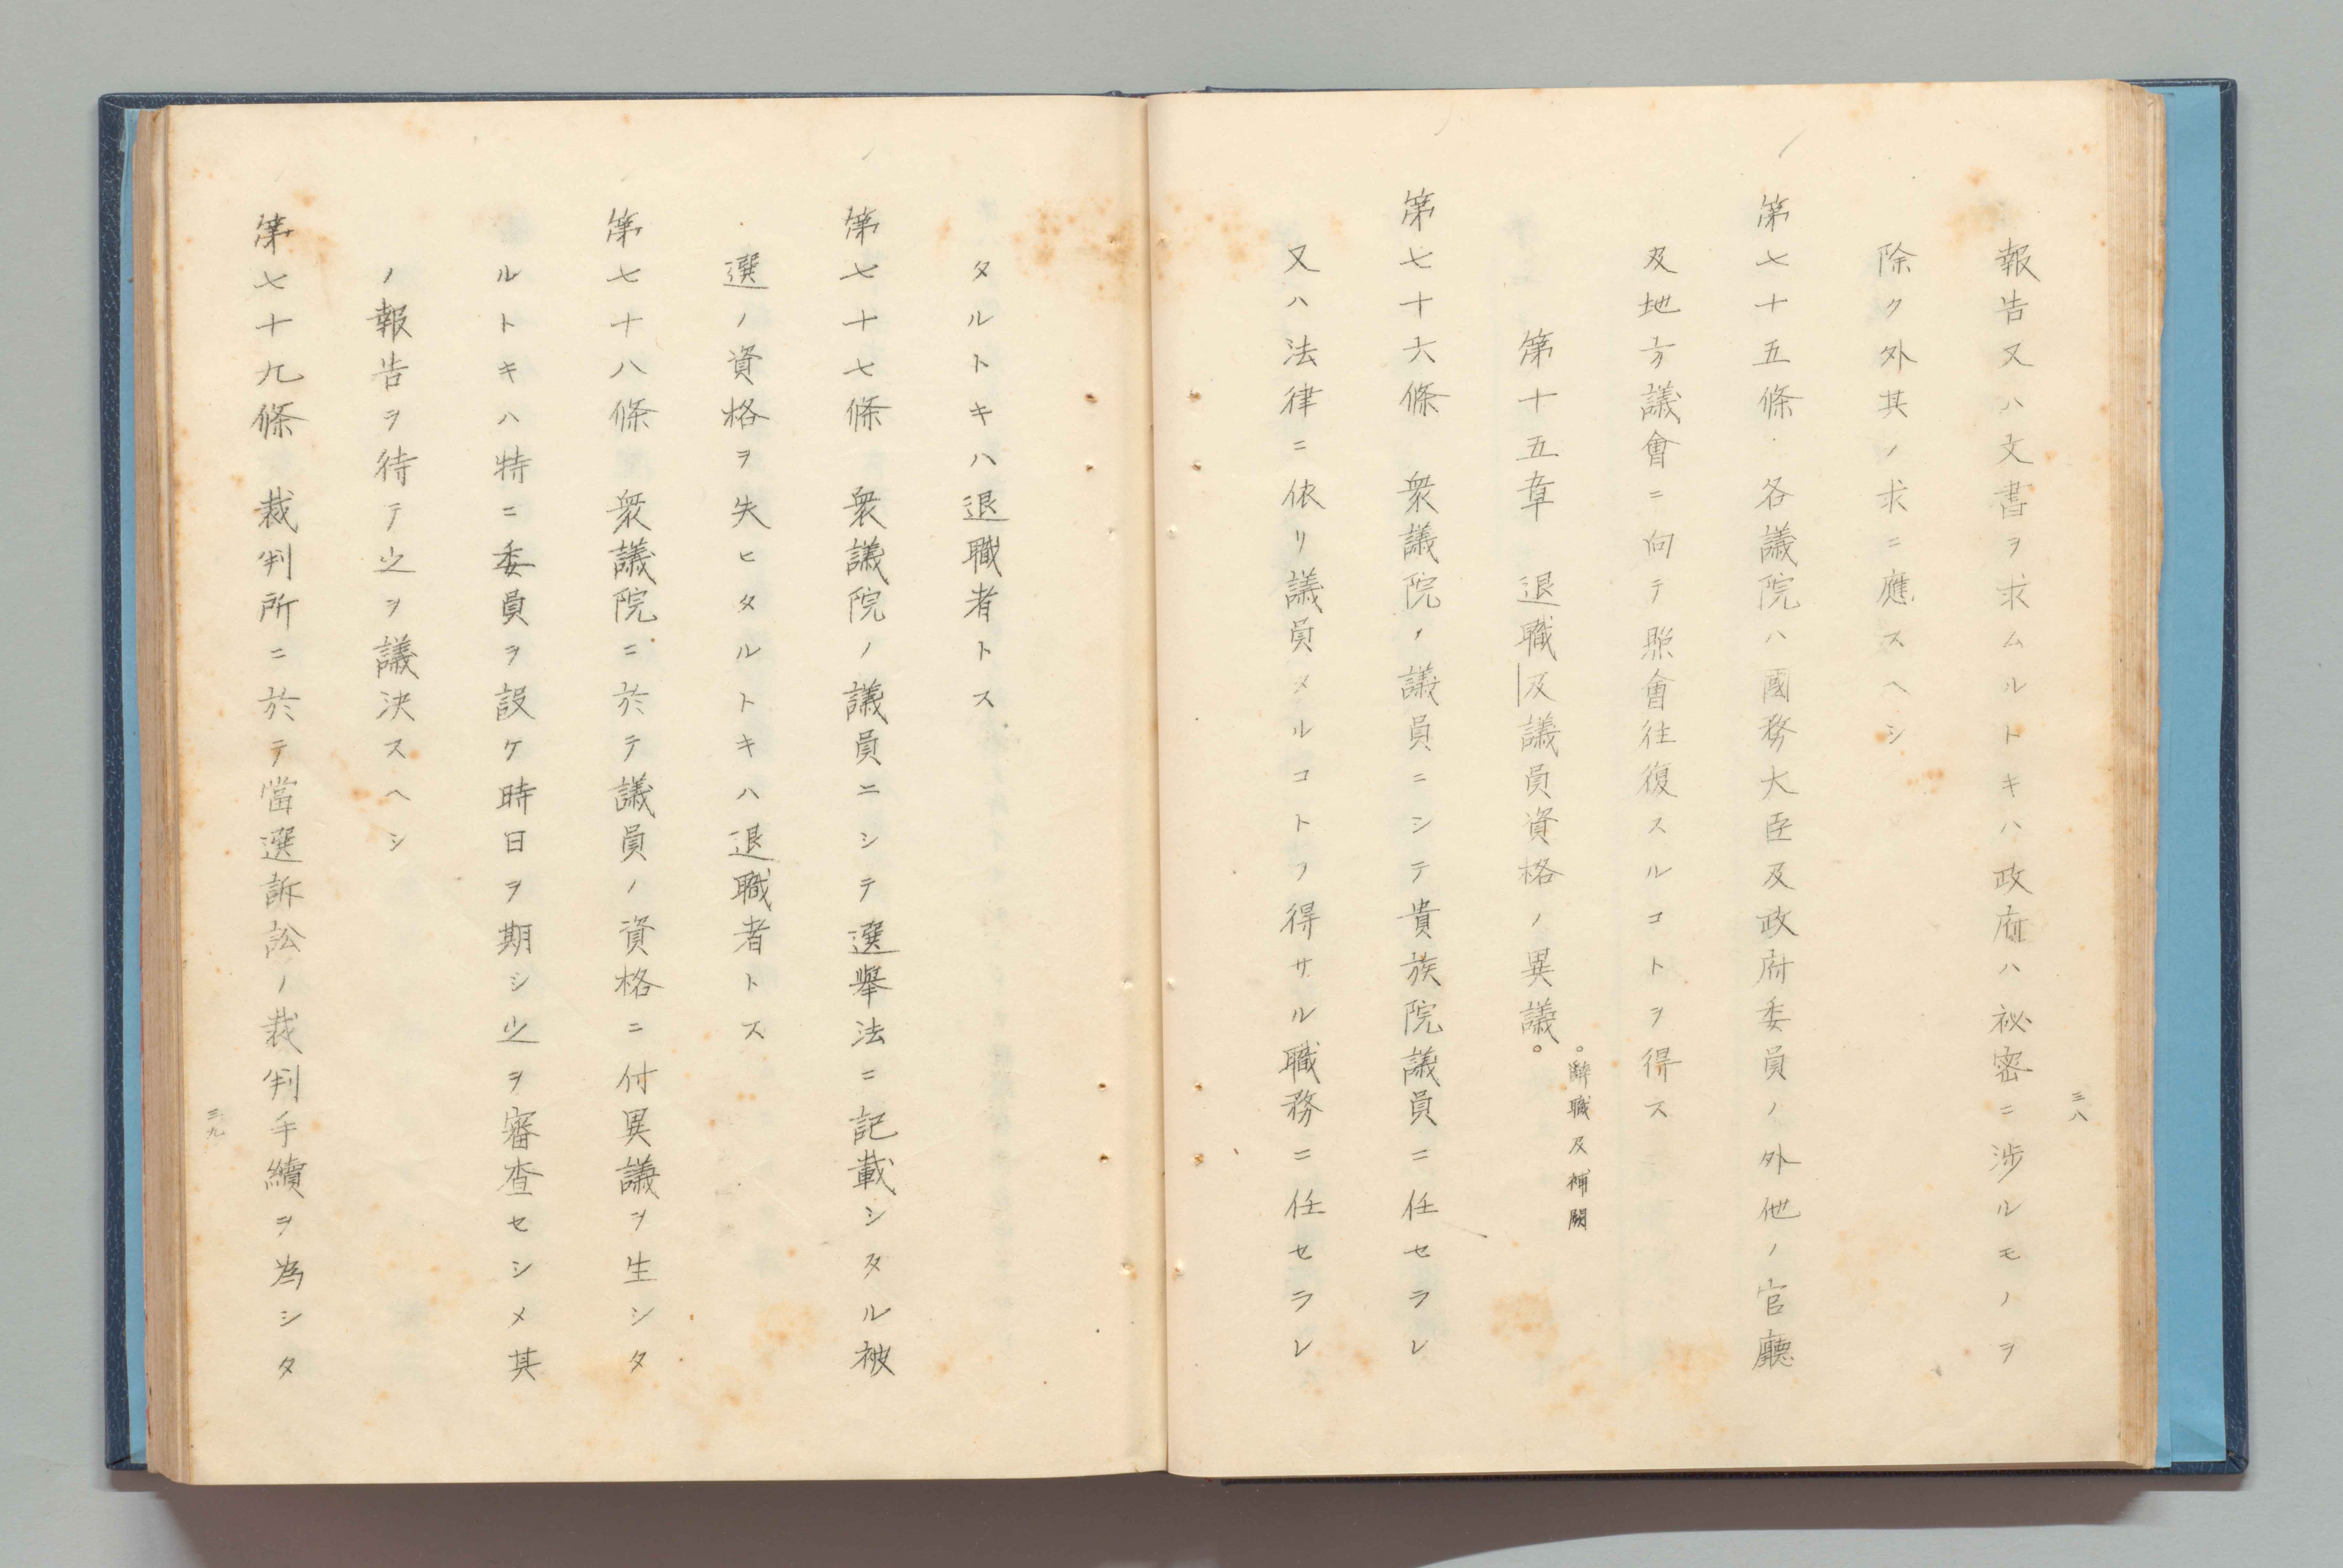 報告又ハ文書ヲ求ムルトキハ政府ハ祕密ニ涉ルモノヲ
除ク外其ノ求ニ應スヘシ
第七十五條 各議院ハ國務大臣及政府委員ノ外他ノ官廳
及地方議會ニ向テ照會往復スルコトヲ得ス
第十五章 退職及議員資格ノ異議。
。辭職及補闕
第七十六條 衆議院ノ議員ニシテ貴族院議員ニ任セラレ
又ハ法律ニ依リ議員タルコトヲ得サル職務ニ任セラレ
三八
タルトキハ退職者トス
第七十七條 衆議院ノ議員ニシテ選擧法ニ記載シタル被
選ノ資格ヲ失ヒタルトキハ退職者トス
第七十八條 衆議院ニ於テ議員ノ資格ニ付異議ヲ生シタ
ルトキハ特ニ委員ヲ設ケ時日ヲ期シ之ヲ審査セシメ其
ノ報告ヲ待テ之ヲ議決スヘシ
第七十九條 裁判所ニ於テ當選訴訟ノ裁判手續ヲ為シタ
三九